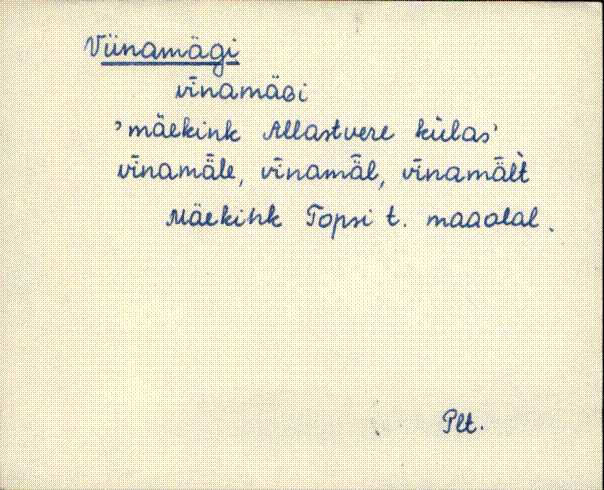 Viinamägi
vīnamäɢi
'mäekink Allastvere külas'
vīnamǟle, vīnamǟl, vīnamǟl̀t
Mäekink Topsi t. maaalal.
Plt.